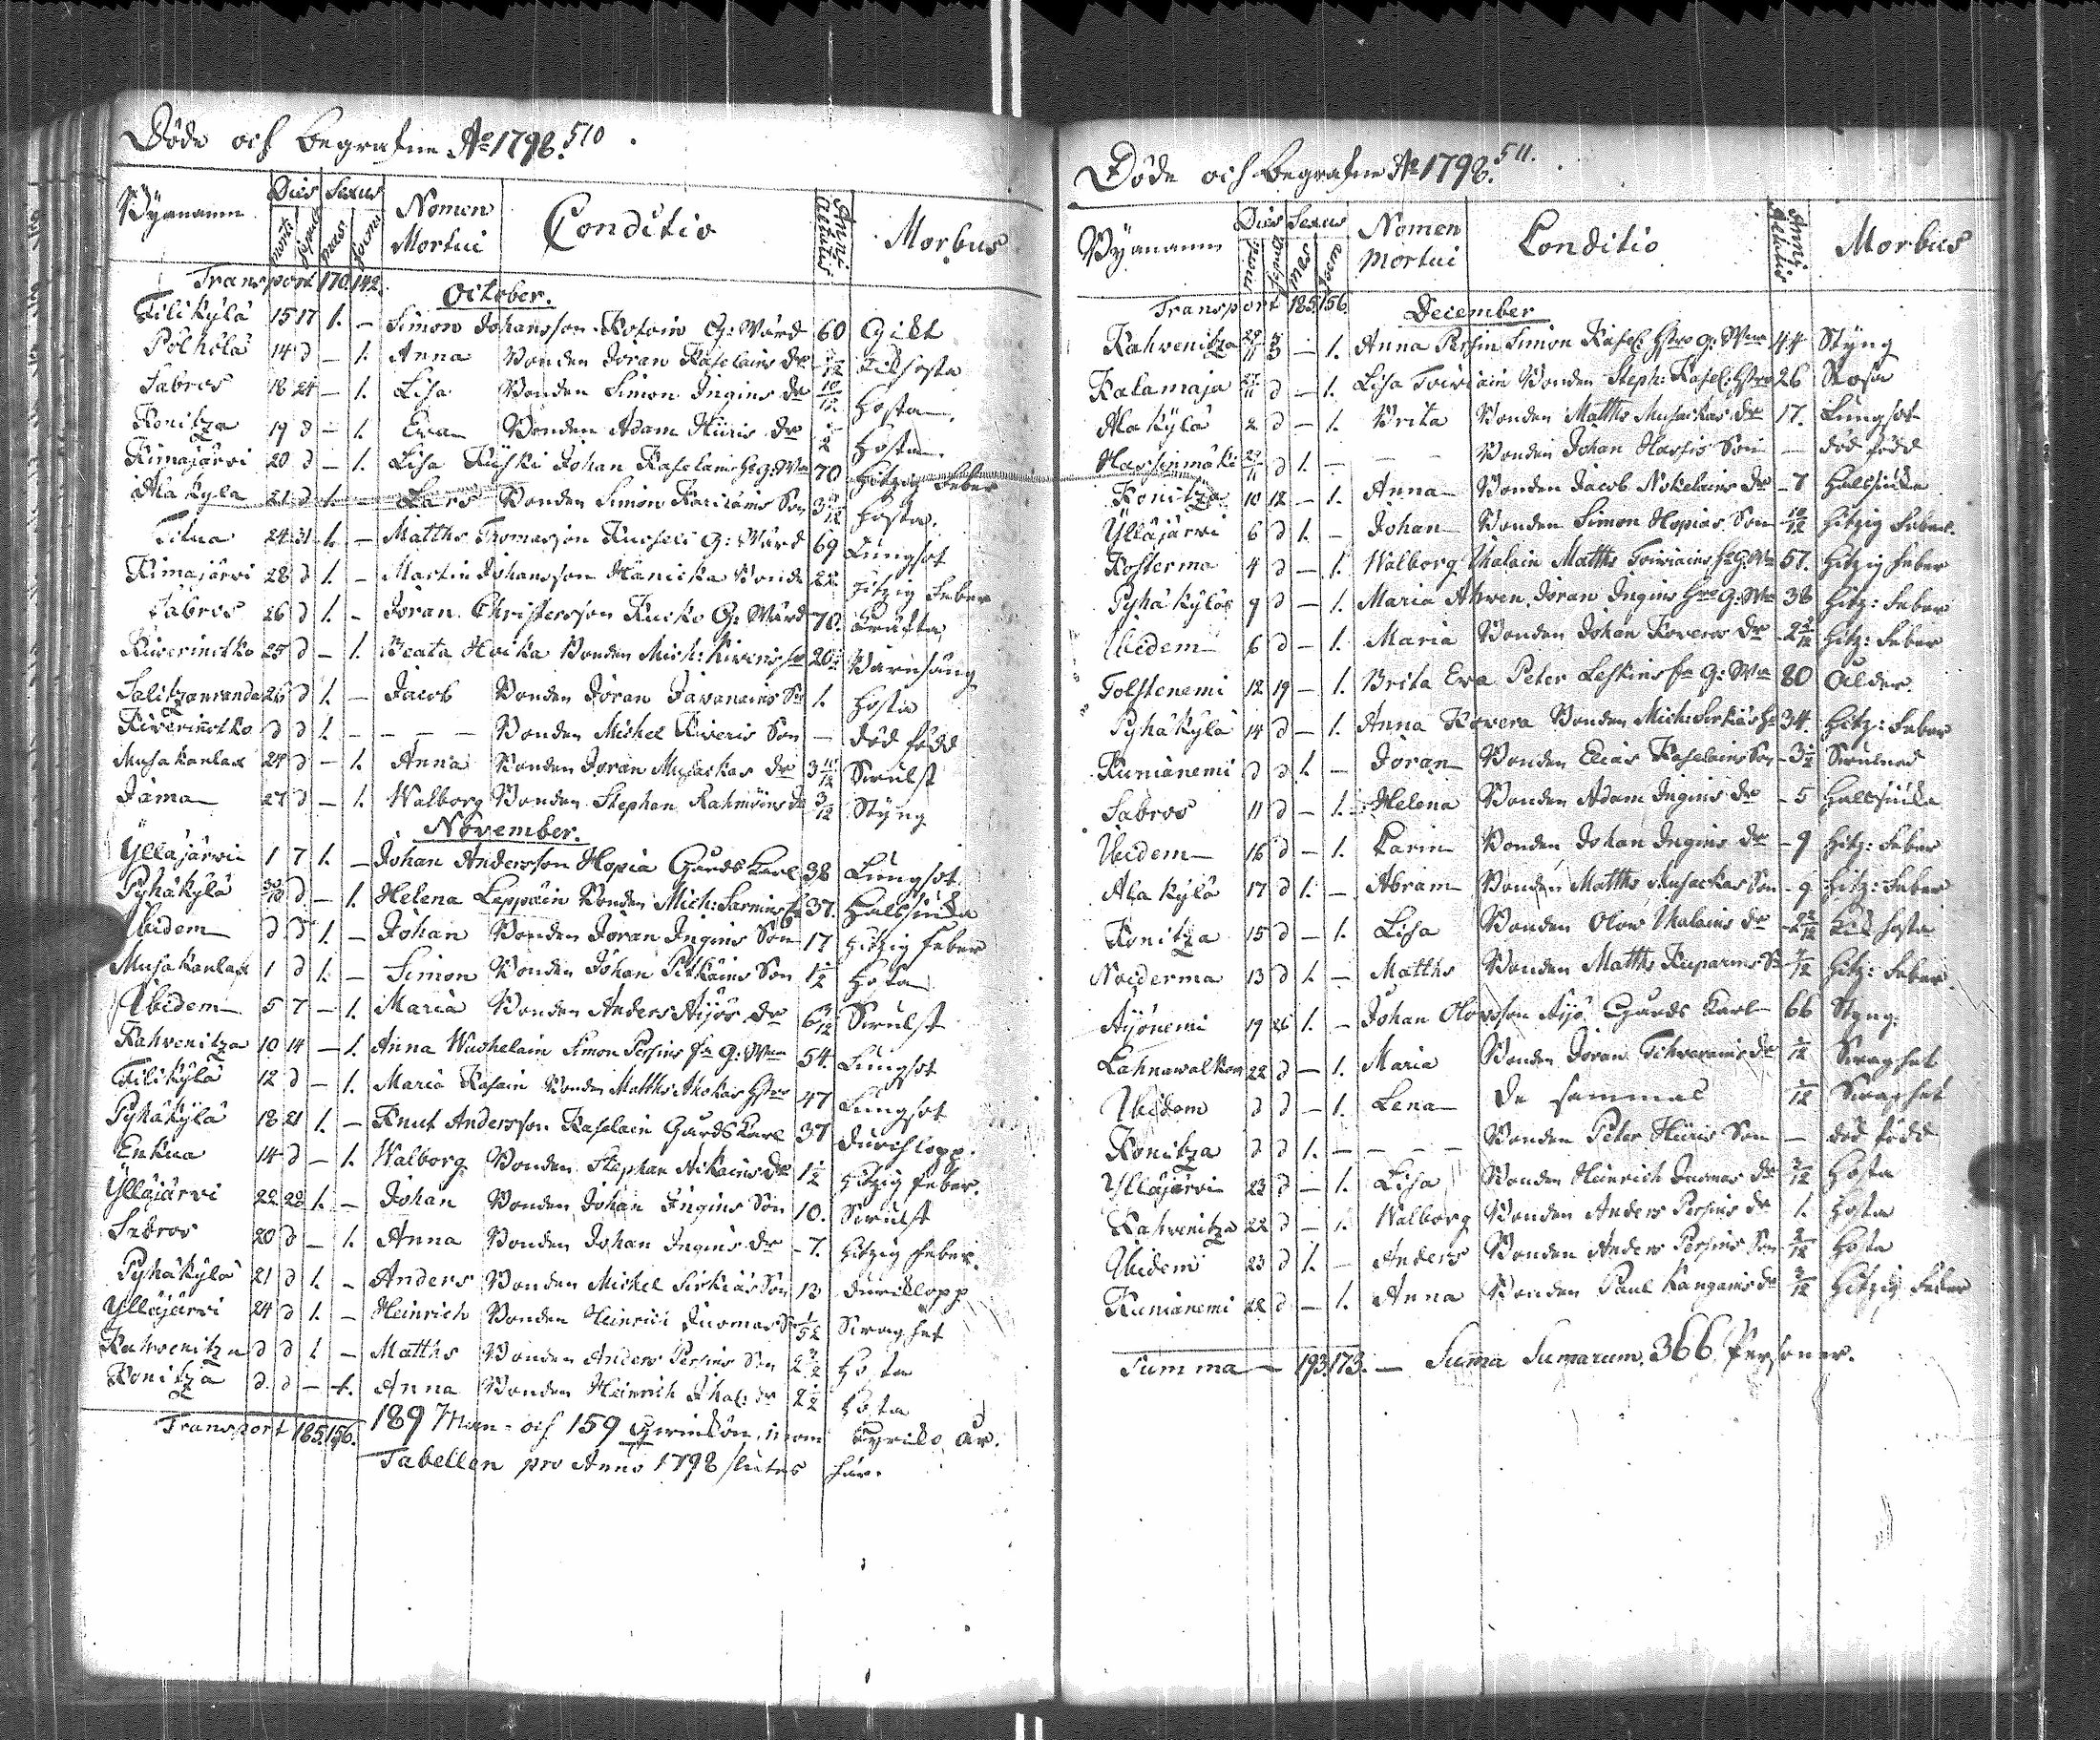 Döde och begrafne Ao 1798. 510
Byanamn Dies Sexus Nomen Mortui Conditio Anni Ætatis Morbus
mort. sepult. mas. foem.
Transport 170. 142.
October.
Filikylä 15 17 1. – Simon Johansson G: Wärd 60 Gikt
Pölhölä 14 d – 1. Anna Bonden Jöran Kaselains dr Kikhosta
Sabros 18 24 – 1. Lisa Bonden Simon Ingins dr 10/12 Hosta.
Konitza 19 d – 1. Eva Bonden Adam Hiiris dr Hosta.
Kimajärvi 20 d – 1. Lisa Kuiski Johan Kaselains G: Wa 70 Hitzig Feber
Ala Kyla 21 d 1. – Lars Bonden Simon Son Hosta.
24 31 1. – Matths Thomasson G: Wärd 69 Lungsot
Kimajärvi 28 d 1. – Martin Johansson Bonde 22 Hitzig Feber
Sabros 26 d 1. – Jöran Christersson Kucko G: Wärd 70. Kräfta
Kiwerinotko 25 d – 1. Beata Hocka Bonden Mich: Kiveris 20 Barnsäng
Salitzanranda 26 d 1. – Jacob Bonden Jöran Javanains Son 1. Hosta
Kiwerinotko d d 1. – – – – Bonden Michel Kiveris Son – död född
Musakanlax 24 d – 1. Anna Bonden Jöran Musackas dr 3 11/12 Swulst
Jama 27 d – 1. Walborg Bonden Stephan Rahmöins dr 3/12 Styng
November.
Ylläjärvi 1 7 1. – Johan Andersson Hopia Gårds Karl 38 Lungsot
Pyhäkylä 30/10 d – 1. Helena Leppäin Bonden Mich: 37. Halssiuka
Ibidem d d 1. – Johan Bonden Jöran Ingins Son 17 Hitzig Feber
Musakanlax 1 d 1. – Simon Bonden Johan Pitkäins Son 1/2 Hosta
Ibidem 5 7 – 1. Maria Bonden Anders Äijös dr Swulst
Kahvenitza 10 14 – 1. Anna Simon Persins G: Wa 54. Lungsot
Filikylä 12 d – 1. Maria Kasain Bonden Matths Ahokas Hstro 47 Lungsot
Pyhäkylä 18 21 1. – Knut Andersson Kaselain Gårds Karl 37 Durchlopp.
Enkua 14 d – 1. Walborg Bonden Stephan dr 1 1/2 Hitzig Feber.
Ylläjärvi 22 28 1. – Johan Bonden Johan Ingins Son 10. Swulst
Sabros 20 d – 1. Anna Bonden Johan Ingins dr – 7. Hitzig Feber.
Pyhäkylä 21 d 1. – Anders Bonden Michel Sirkiäs Son 13 Durchlopp
Ylläjärvi 24 d 1. – Heinrich Bonden Heinrich Juomas Swaghet
Kahvenitza d d 1 – Matths Bonden Anders Persins Son Hosta
Konitza d. d – 1. Anna Bonden Heinrich dr 2 1/2 Hosta
Transport 185. 156. 189 Man- och 159 Qvinkön, inom Kyrko år.
Tabellen pro Anno 1798 slutes här.
Döde och begrafne Ao 1798. 511.
Byanamn Dies Sexus Nomen Mortui Conditio Anni Ætatis Morbus
mort. sepult. mas. foem.
Transport 185. 156.
December
Kahvenitza 29/11 3 – 1. Anna Persin Simon Kasel: Hstro G: Wa 44 Styng
Kalamaja 27/11 d – 1. Lisa Toiviain Bonden Steph: Kasel: Hstro 26 Rosa
Ala Kylä 2 d – 1. Brita Bonden Matths Musackas dr 17. Lungsot
Hassinmäki 29/11 d 1. – – – Bonden Johan Hassis Son – död född
Konitza 10 12 – 1. Anna Bonden Jacob Nokelains dr – 7 Halssiuka
Ylläjärvi 6 d 1. – Johan Bonden Simon Hopias Son 10/12 Hitzig Feber.
Kosterma 4 d – 1. Walborg Ihalain Matths Toiviains G: Wa 57. Hitzig Feber
Pyhäkylä 9 d – 1. Maria Ahven Jöran Ingins Hstro G: Wa 38 Hitz: Feber
Ibidem 6 d – 1. Maria Bonden Johan Koveros dr Hitz: Feber
Tolstenemi 12 19 – 1. Brita Eva Peter Leskins G: Wa 80 Ålder.
Pyhäkylä 14 d – 1. Anna Kovera Bonden Mich: Sirkiäs 34. Hitz: Feber
Kunianemi d d 1. – Jöran Bonden Elias Kaselains Son Swulnad
Sabros 11 d – 1. Helena Bonden Adam Ingins dr – 5 Halssiuka
Ibidem 16 d – 1. Karin Bonden Johan Ingins dr – 9 Hitz: Feber
Ala Kylä 17 d 1. – Abram Bonden Matths Musackas Son – 9 Hitz: Feber
Konitza 15 d – 1. Lisa Bonden Olow Ihalains dr Kikhosta
Noiderma 13 d 1. – Matths Bonden Matths Kuparins Son Hitz: Feber.
Äyönemi 19 26 1. – Johan Olowsson Äyö Gårds Karl 66 Styng.
Lahnawalkam 22 d – 1. Maria Bonden Jöran dr 1/12 Swaghet
Ibidem d d – 1. Lena De sammas 1/12 Swaghet
Konitza d d 1. – – – – Bonden Peter Hiiris Son – död född
Ylläjärvi 23 d – 1. Lisa Bonden Heinrich Juomas dr Hosta
Kahvenitza 22 d – 1. Walborg Bonden Anders Persins dr 1. Hosta
Ibidem 23 d 1. – Anders Bonden Anders Persins Son Hosta
Kunianemi 22 d – 1. Anna Bonden Paul Kangains dr 3/12 Hitzig Feber
Summa – 193. 173. – Suma Sumarum. 366 Personer.